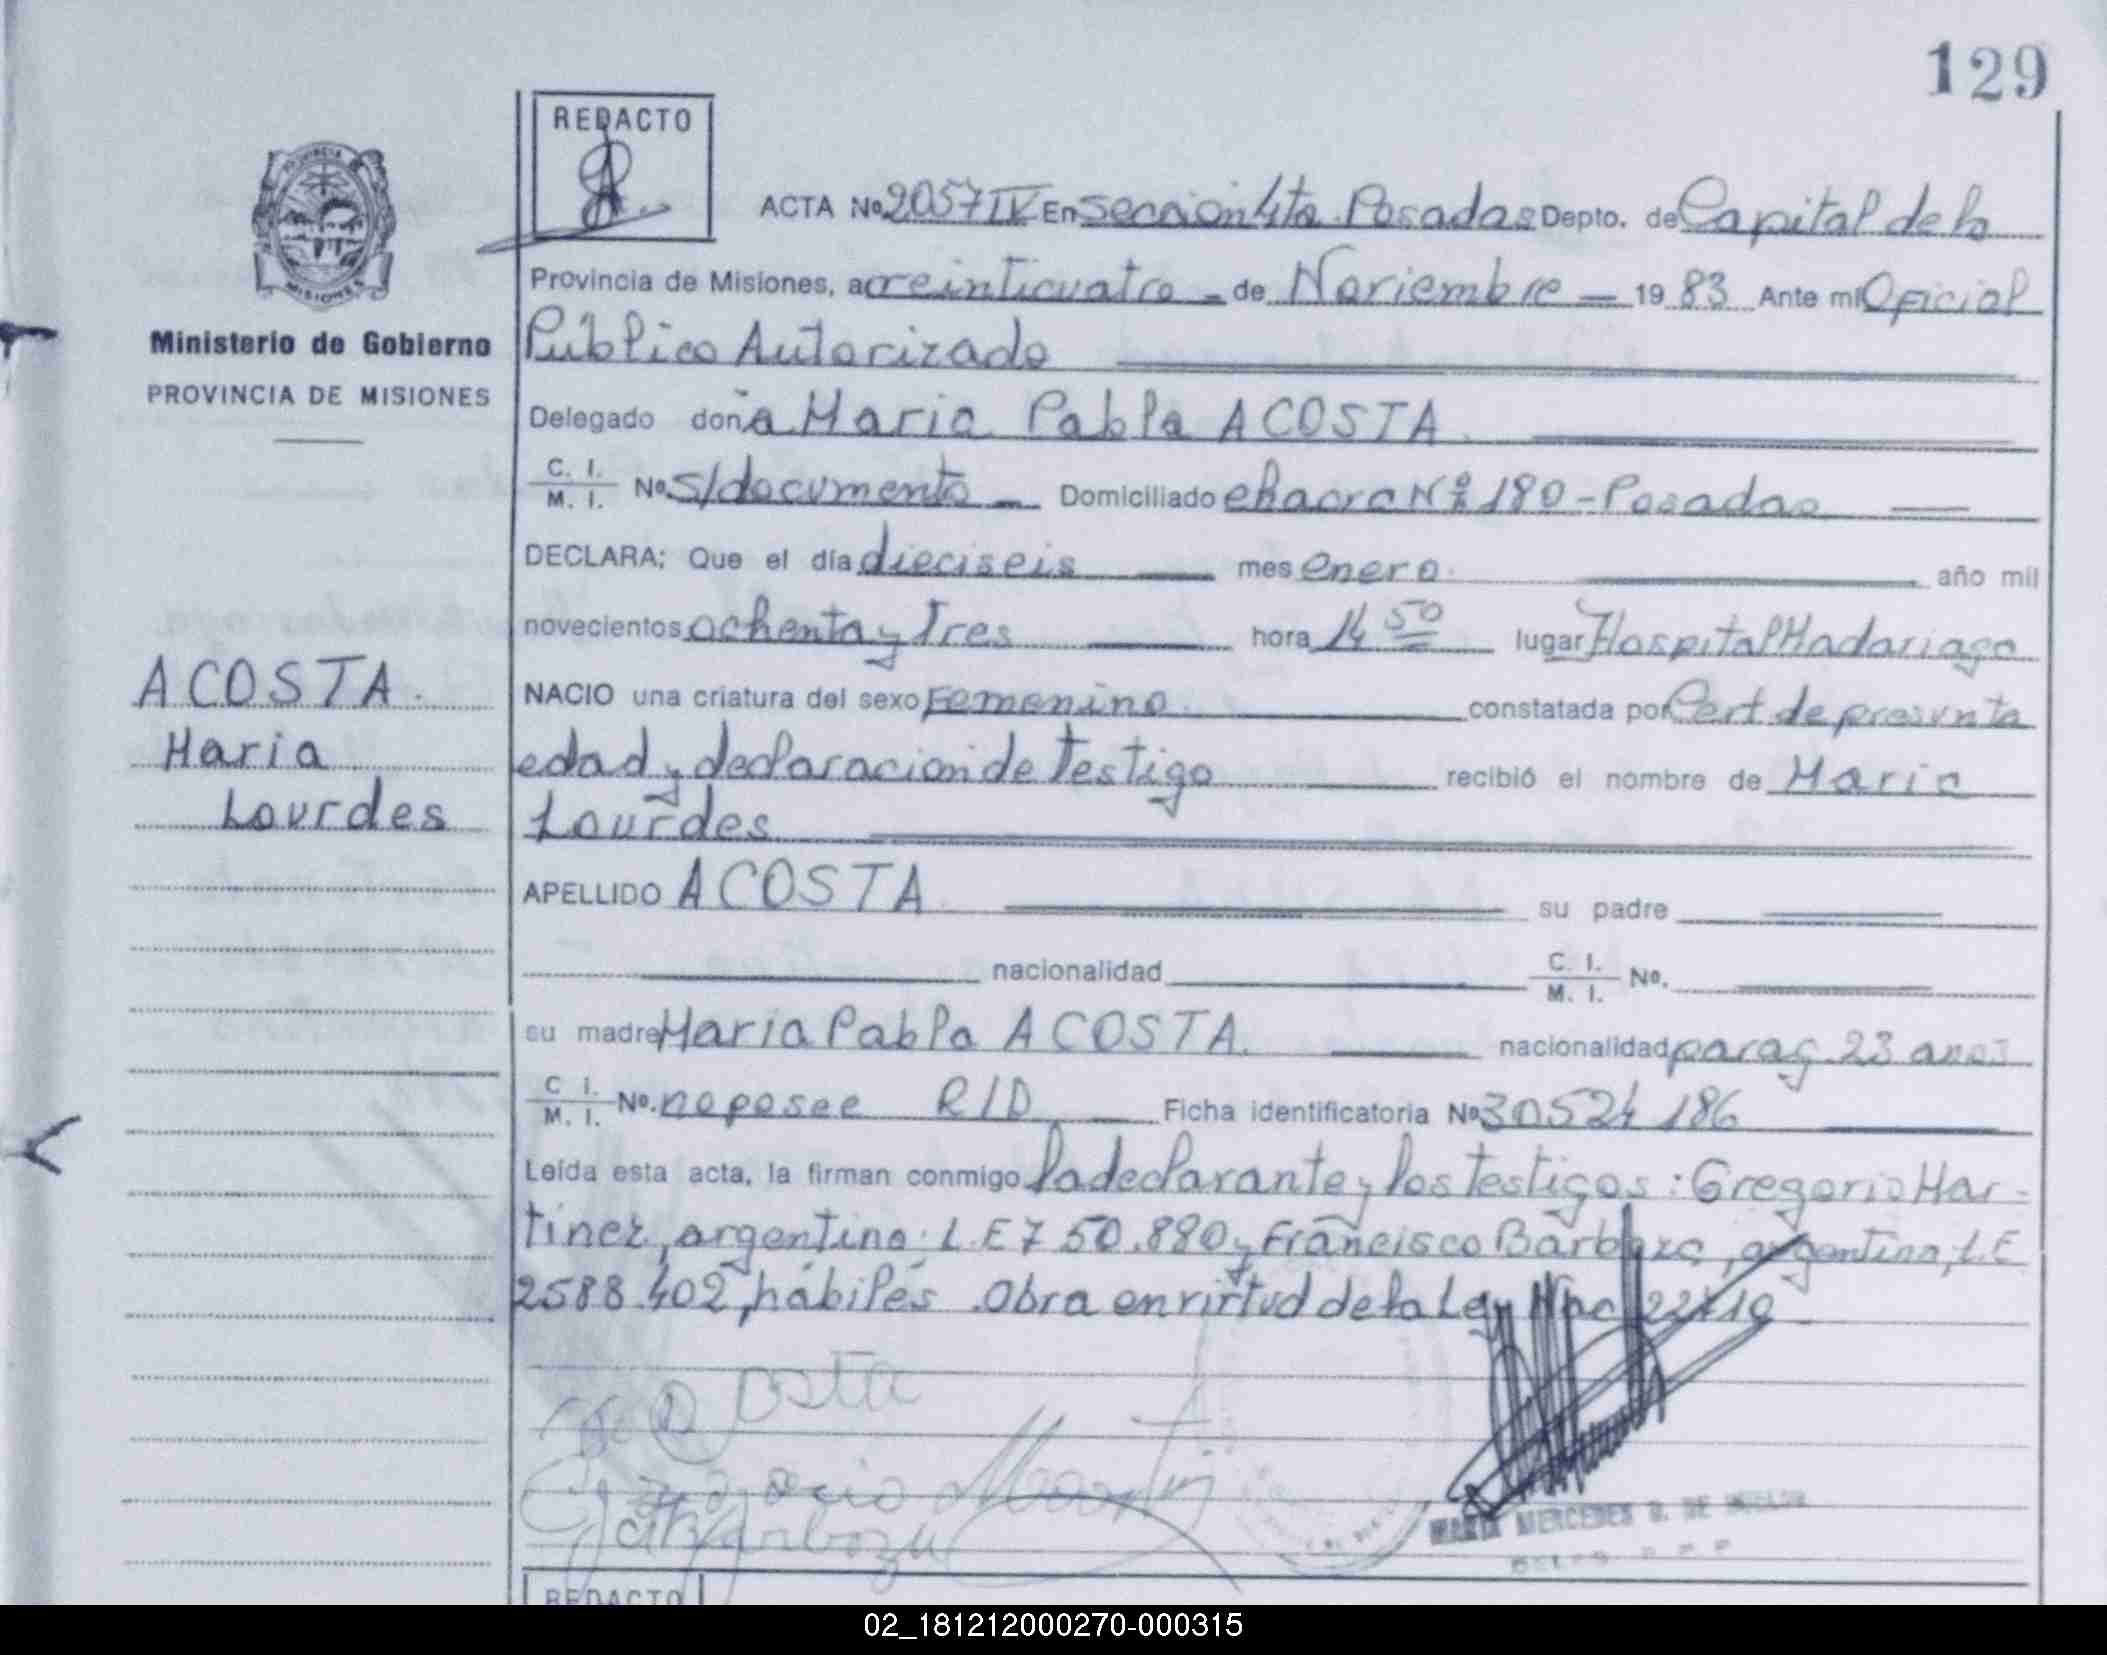 129
REDACTO
ACTA Nº 2057 IV En Sección 4ta. Posadas Depto. de Capital de la
Provincia de Misiones, a veinticuatro de Noviembre 19 83 Ante mí Oficial
Público Autorizado
Ministerio de Gobierno
PROVINCIA DE MISIONES
Delegado doña Maria Pabla ACOSTA
C. I. M. I. Nº s/documento Domiciliado chacra Nº 190 - Posadas
DECLARA; Que el día dieciseis mes enero año mil
novecientos ochenta y tres hora 14 50 lugar Hospital Madariaga
ACOSTA.
Maria
Lourdes
NACIO una criatura del sexo Femenino constatada por Cert de presunta
edad y declaracion de testigo recibió el nombre de Maria
Lourdes
APELLIDO ACOSTA su padre
nacionalidad C. I. M. I. Nº.
su madre Maria Pabla ACOSTA. nacionalidad parag 23 anos
C. I. M. I. Nº. no posee R/D Ficha identificatoria Nº 30524186
Leída esta acta, la firman conmigo la declarante y los testigos: Gregorio Mar-
tinez, argentino. L.E 7 50.880 y Francisco Barboza, argentino, L.E
2588.402, hábiles. Obra en virtud de la Ley Nac 22410
Gregorio Martin
Barboza
MARIA MERCEDES G. DE
REDACTO
02_181212000270-000315